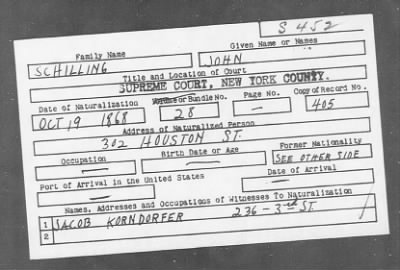 S 452
Family Name Given Name or Names
SCHILLING JOHN
Title and Location of Court
SUPREME COURT, NEW YORK COUNTY.
Date of Naturalization Volume or Bundle No. Page No. Copy of Record No.
OCT 19 1868 28 — 405
Address of Naturalized Person
302 HOUSTON ST.
Occupation Birth Date or Age Former Nationality
— — SEE OTHER SIDE
Port of Arrival in the United States Date of Arrival
— —
Names, Addresses and Occupations of Witnesses To Naturalization
1 JACOB KORNDORFER 236 - 3rd ST.
2